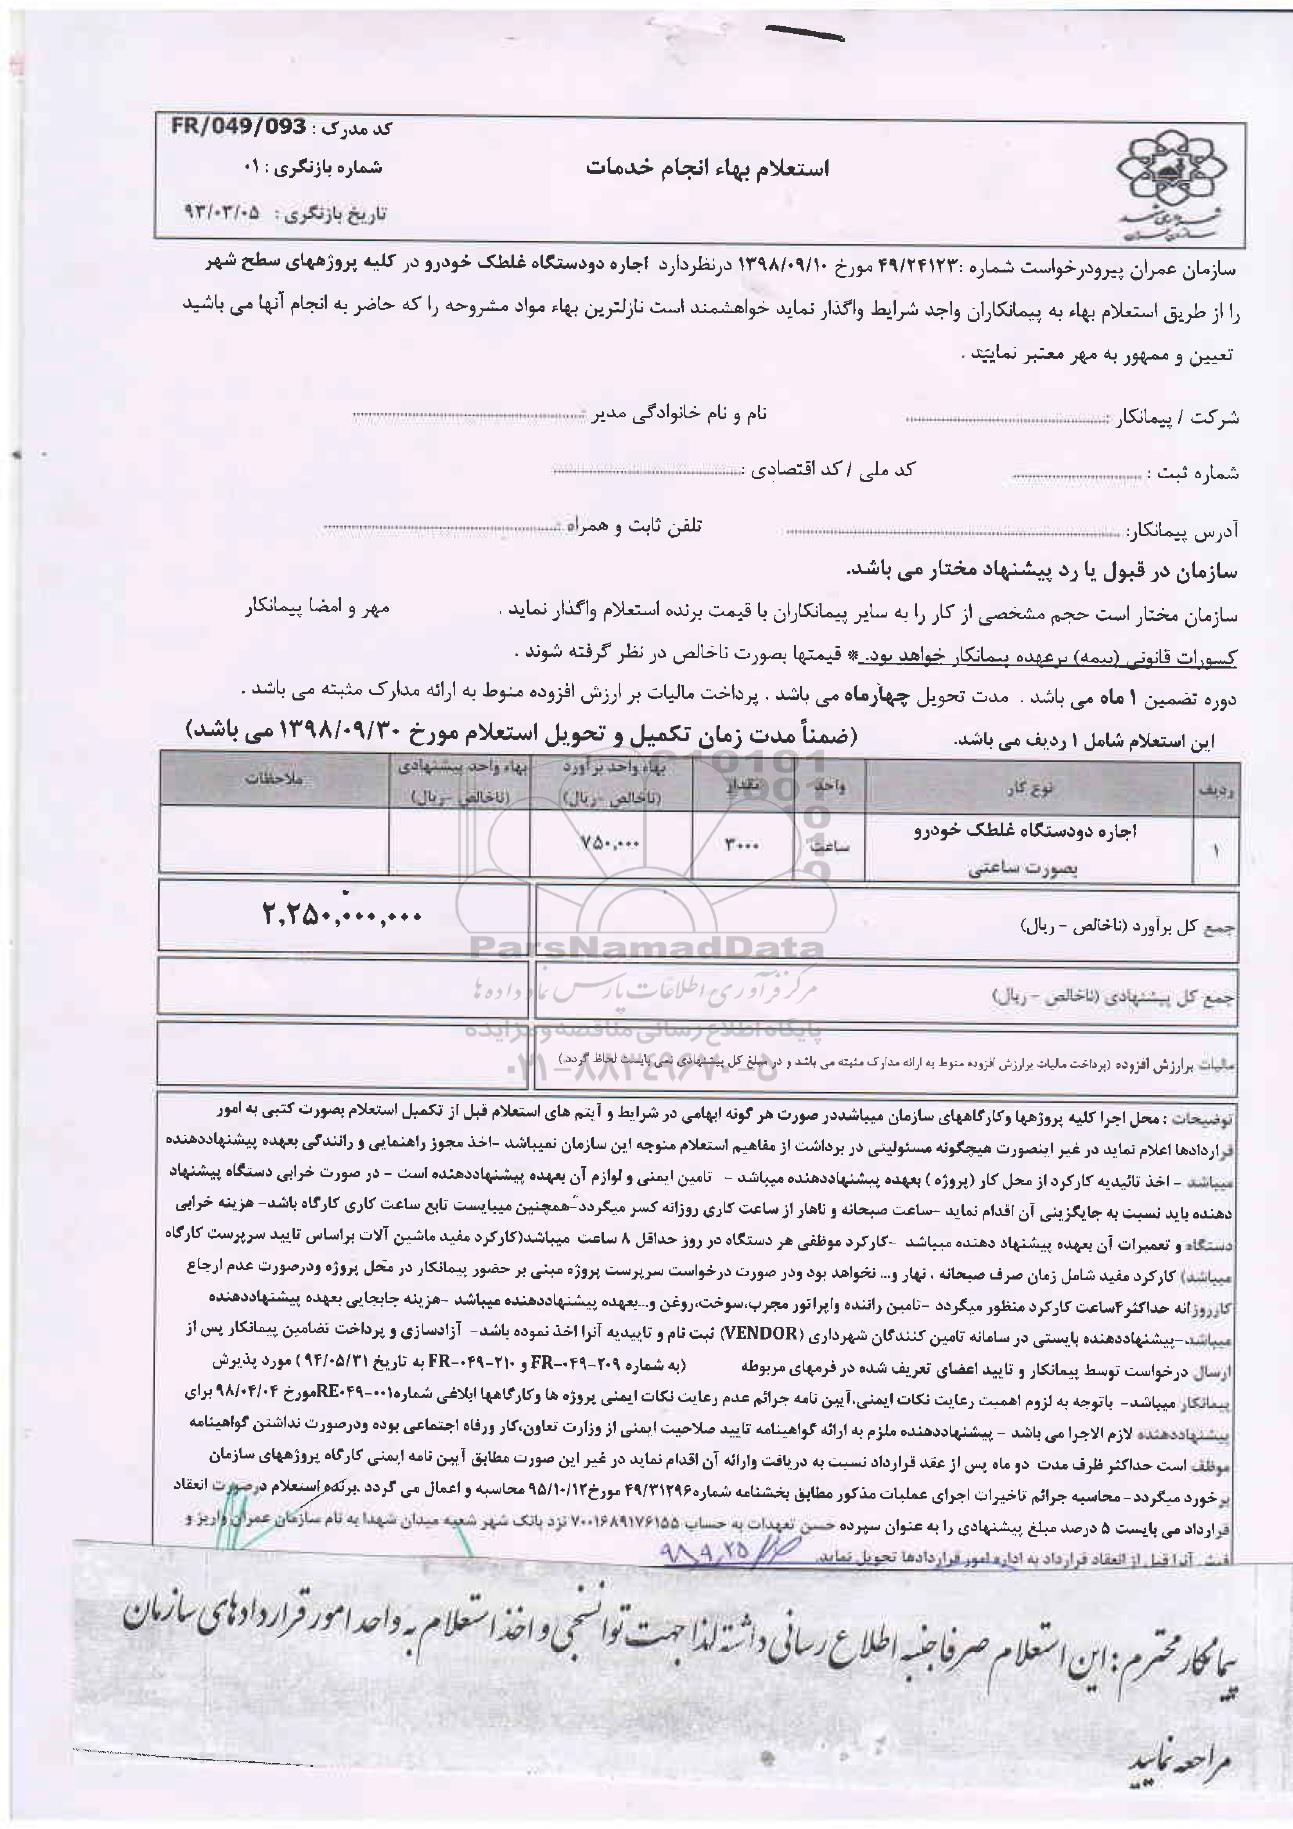 کد مدرک : FR/049/093
استعلام بهاء انجام خدمات
شماره بازنگری : ۰۱
تاریخ بازنگری : ۹۳/۰۳/۰۵
سازمان عمران پیرودرخواست شماره :۴۹/۲۴۱۲۳ مورخ ۱۳۹۸/۰۹/۱۰ درنظردارد اجاره دودستگاه غلطک خودرو در کلیه پروژههای سطح شهر
را از طریق استعلام بهاء به پیمانکاران واجد شرایط واگذار نماید خواهشمند است نازلترین بهاء مواد مشروحه را که حاضر به انجام آنها می باشید
تعیین و ممهور به مهر معتبر نمایید .
شرکت / پیمانکار : نام و نام خانوادگی مدیر :
شماره ثبت : کد ملی / کد اقتصادی :
آدرس پیمانکار: تلفن ثابت و همراه :
سازمان در قبول یا رد پیشنهاد مختار می باشد.
سازمان مختار است حجم مشخصی از کار را به سایر پیمانکاران با قیمت برنده استعلام واگذار نماید . مهر و امضا پیمانکار
کسورات قانونی (بیمه) برعهده پیمانکار خواهد بود. * قیمتها بصورت ناخالص در نظر گرفته شوند .
دوره تضمین ۱ ماه می باشد . مدت تحویل چهارماه می باشد . پرداخت مالیات بر ارزش افزوده منوط به ارائه مدارک مثبته می باشد .
این استعلام شامل ۱ ردیف می باشد. (ضمناً مدت زمان تکمیل و تحویل استعلام مورخ ۱۳۹۸/۰۹/۳۰ می باشد)
ردیف نوع کار واحد مقدار بهاء واحد برآورد (ناخالص -ریال) بهاء واحد پیشنهادی (ناخالص -ریال) ملاحظات
۱ اجاره دودستگاه غلطک خودرو بصورت ساعتی ساعت ۳۰۰۰ ۷۵۰,۰۰۰
جمع کل برآورد (ناخالص - ریال) ۲,۲۵۰,۰۰۰,۰۰۰
ParsNamadData
جمع کل پیشنهادی (ناخالص - ریال)
مرکز فرآوری اطلاعات پارس نماد داده ها
پایگاه اطلاع رسانی مناقصه و مزایده
مالیات برارزش افزوده (پرداخت مالیات برارزش افزوده منوط به ارائه مدارک مثبته می باشد و در مبلغ کل پیشنهادی نمی بایست لحاظ گردد.)
۰۲۱-۸۸۳۴۹۶۷۰-۵
توضیحات : محل اجرا کلیه پروژهها وکارگاههای سازمان میباشددر صورت هر گونه ابهامی در شرایط و آیتم های استعلام قبل از تکمیل استعلام بصورت کتبی به امور
قراردادها اعلام نماید در غیر اینصورت هیچگونه مسئولیتی در برداشت از مفاهیم استعلام متوجه این سازمان نمیباشد -اخذ مجوز راهنمایی و رانندگی بعهده پیشنهاددهنده
میباشد - اخذ تائیدیه کارکرد از محل کار (پروژه ) بعهده پیشنهاددهنده میباشد - تامین ایمنی و لوازم آن بعهده پیشنهاددهنده است - در صورت خرابی دستگاه پیشنهاد
دهنده باید نسبت به جایگزینی آن اقدام نماید -ساعت صبحانه و ناهار از ساعت کاری روزانه کسر میگردد-همچنین میبایست تابع ساعت کاری کارگاه باشد- هزینه خرابی
دستگاه و تعمیرات آن بعهده پیشنهاد دهنده میباشد -کارکرد موظفی هر دستگاه در روز حداقل ۸ ساعت میباشد(کارکرد مفید ماشین آلات براساس تایید سرپرست کارگاه
میباشد) کارکرد مفید شامل زمان صرف صبحانه ، نهار و... نخواهد بود ودر صورت درخواست سرپرست پروژه مبنی بر حضور پیمانکار در محل پروژه ودرصورت عدم ارجاع
کارروزانه حداکثر۴ساعت کارکرد منظور میگردد -تامین راننده واپراتور مجرب،سوخت،روغن و...بعهده پیشنهاددهنده میباشد -هزینه جابجایی بعهده پیشنهاددهنده
میباشد.-پیشنهاددهنده بایستی در سامانه تامین کنندگان شهرداری (VENDOR) ثبت نام و تاییدیه آنرا اخذ نموده باشد- آزادسازی و پرداخت تضامین پیمانکار پس از
ارسال درخواست توسط پیمانکار و تایید اعضای تعریف شده در فرمهای مربوطه (به شماره FR-۰۴۹-۲۰۹ و FR-۰۴۹-۲۱۰ به تاریخ ۹۴/۰۵/۳۱ ) مورد پذیرش
پیمانکار میباشد- باتوجه به لزوم اهمیت رعایت نکات ایمنی،آیین نامه جرائم عدم رعایت نکات ایمنی پروژه ها وکارگاهها ابلاغی شماره۰۰۱-RE۰۴۹مورخ ۹۸/۰۴/۰۴ برای
پیشنهاددهنده لازم الاجرا می باشد - پیشنهاددهنده ملزم به ارائه گواهینامه تایید صلاحیت ایمنی از وزارت تعاون،کار ورفاه اجتماعی بوده ودرصورت نداشتن گواهینامه
موظف است حداکثر ظرف مدت دو ماه پس از عقد قرارداد نسبت به دریافت وارائه آن اقدام نماید در غیر این صورت مطابق آیین نامه ایمنی کارگاه پروژههای سازمان
برخورد میگردد-محاسبه جرائم تاخیرات اجرای عملیات مذکور مطابق بخشنامه شماره۴۹/۳۱۲۹۶ مورخ۹۵/۱۰/۱۲ محاسبه و اعمال می گردد .برنده استعلام درصورت انعقاد
قرارداد می بایست ۵ درصد مبلغ پیشنهادی را به عنوان سپرده حسن تعهدات به حساب ۷۰۰۱۶۸۹۱۷۶۱۵۵ نزد بانک شهر شعبه میدان شهدا به نام سازمان عمران واریز و
فیش آنرا قبل از انعقاد قرارداد به اداره امور قراردادها تحویل نماید.
۹۸,۹,۲۵
پیمانکار محترم : این استعلام صرفا جنبه اطلاع رسانی داشته لذا جهت توانسنجی و اخذ استعلام به واحد امور قراردادهای سازمان
مراجعه نمایید